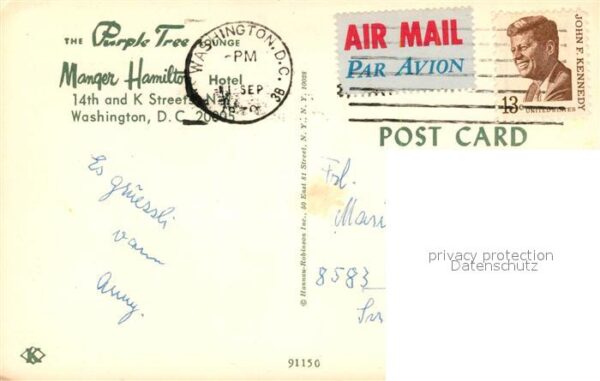 THE Purple Tree LOUNGE
Manger Hamilton
Hotel
14th and K Streets, N.
Washington, D. C. 20005
WASHINGTON, D.C.
PM
11 SEP
AIR MAIL
PAR AVION
JOHN F. KENNEDY
13c UNITED STATES
POST CARD
Es grüessli
vom
Anny.
© Hannau-Robinson Inc., 50 East 81 Street, N. Y., N. Y. 10028
Frl.
Mari
8583
privacy protection
Datenschutz
K
91150